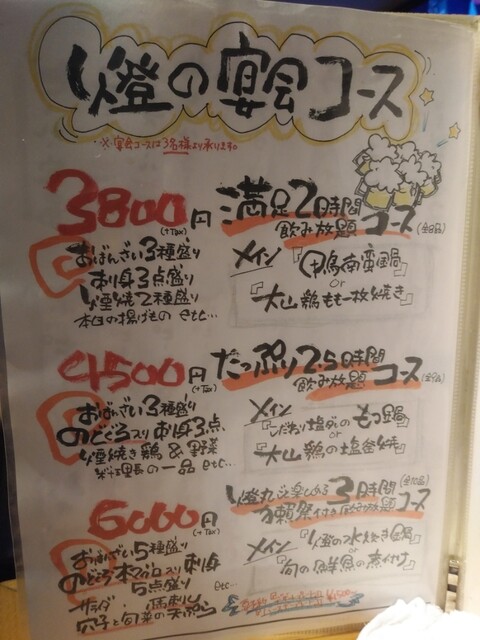 燈の宴会コース
※宴会コースは3名様より承ります。
3800円(+Tax)
満足2時間飲み放題コース(全8品)
おばんざい3種盛り
お刺身3点盛り
燈焼き2種盛り
本日の揚げもの etc…
メイン
『鴨南蛮鍋』
or
『大山鶏もも一枚焼き』
4500円(+Tax)
たっぷり2.5時間飲み放題コース
おばんざい3種盛り
のどぐろ入り お刺身3点、
燈焼き鶏&野菜
料理長の一品 etc…
メイン
『こだわり塩ダレのもつ鍋』
or
『大山鶏の塩釜焼』
6000円(+Tax)
3時間
獺祭付き飲み放題コース
おばんざい5種盛り
のどぐろ
お刺身
5点盛り
サラダ
馬刺し
穴子と旬菜の天ぷら
etc…
メイン
『燈の水炊き鍋』
or
『旬の鮮魚の煮付け』